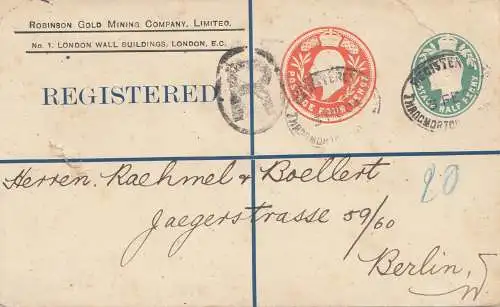 Robinson Gold Mining Company, Limited.
No. 1. LONDON WALL BUILDINGS, LONDON, E.C.
REGISTERED
R
POSTAGE FOURPENCE
POSTAGE HALF PENNY
REGISTERED
THROGMORTON
REGISTERED
THROGMORTON
Herren. Raehmel & Boellert
20
Jaegerstrasse 59/60
Berlin,
W.